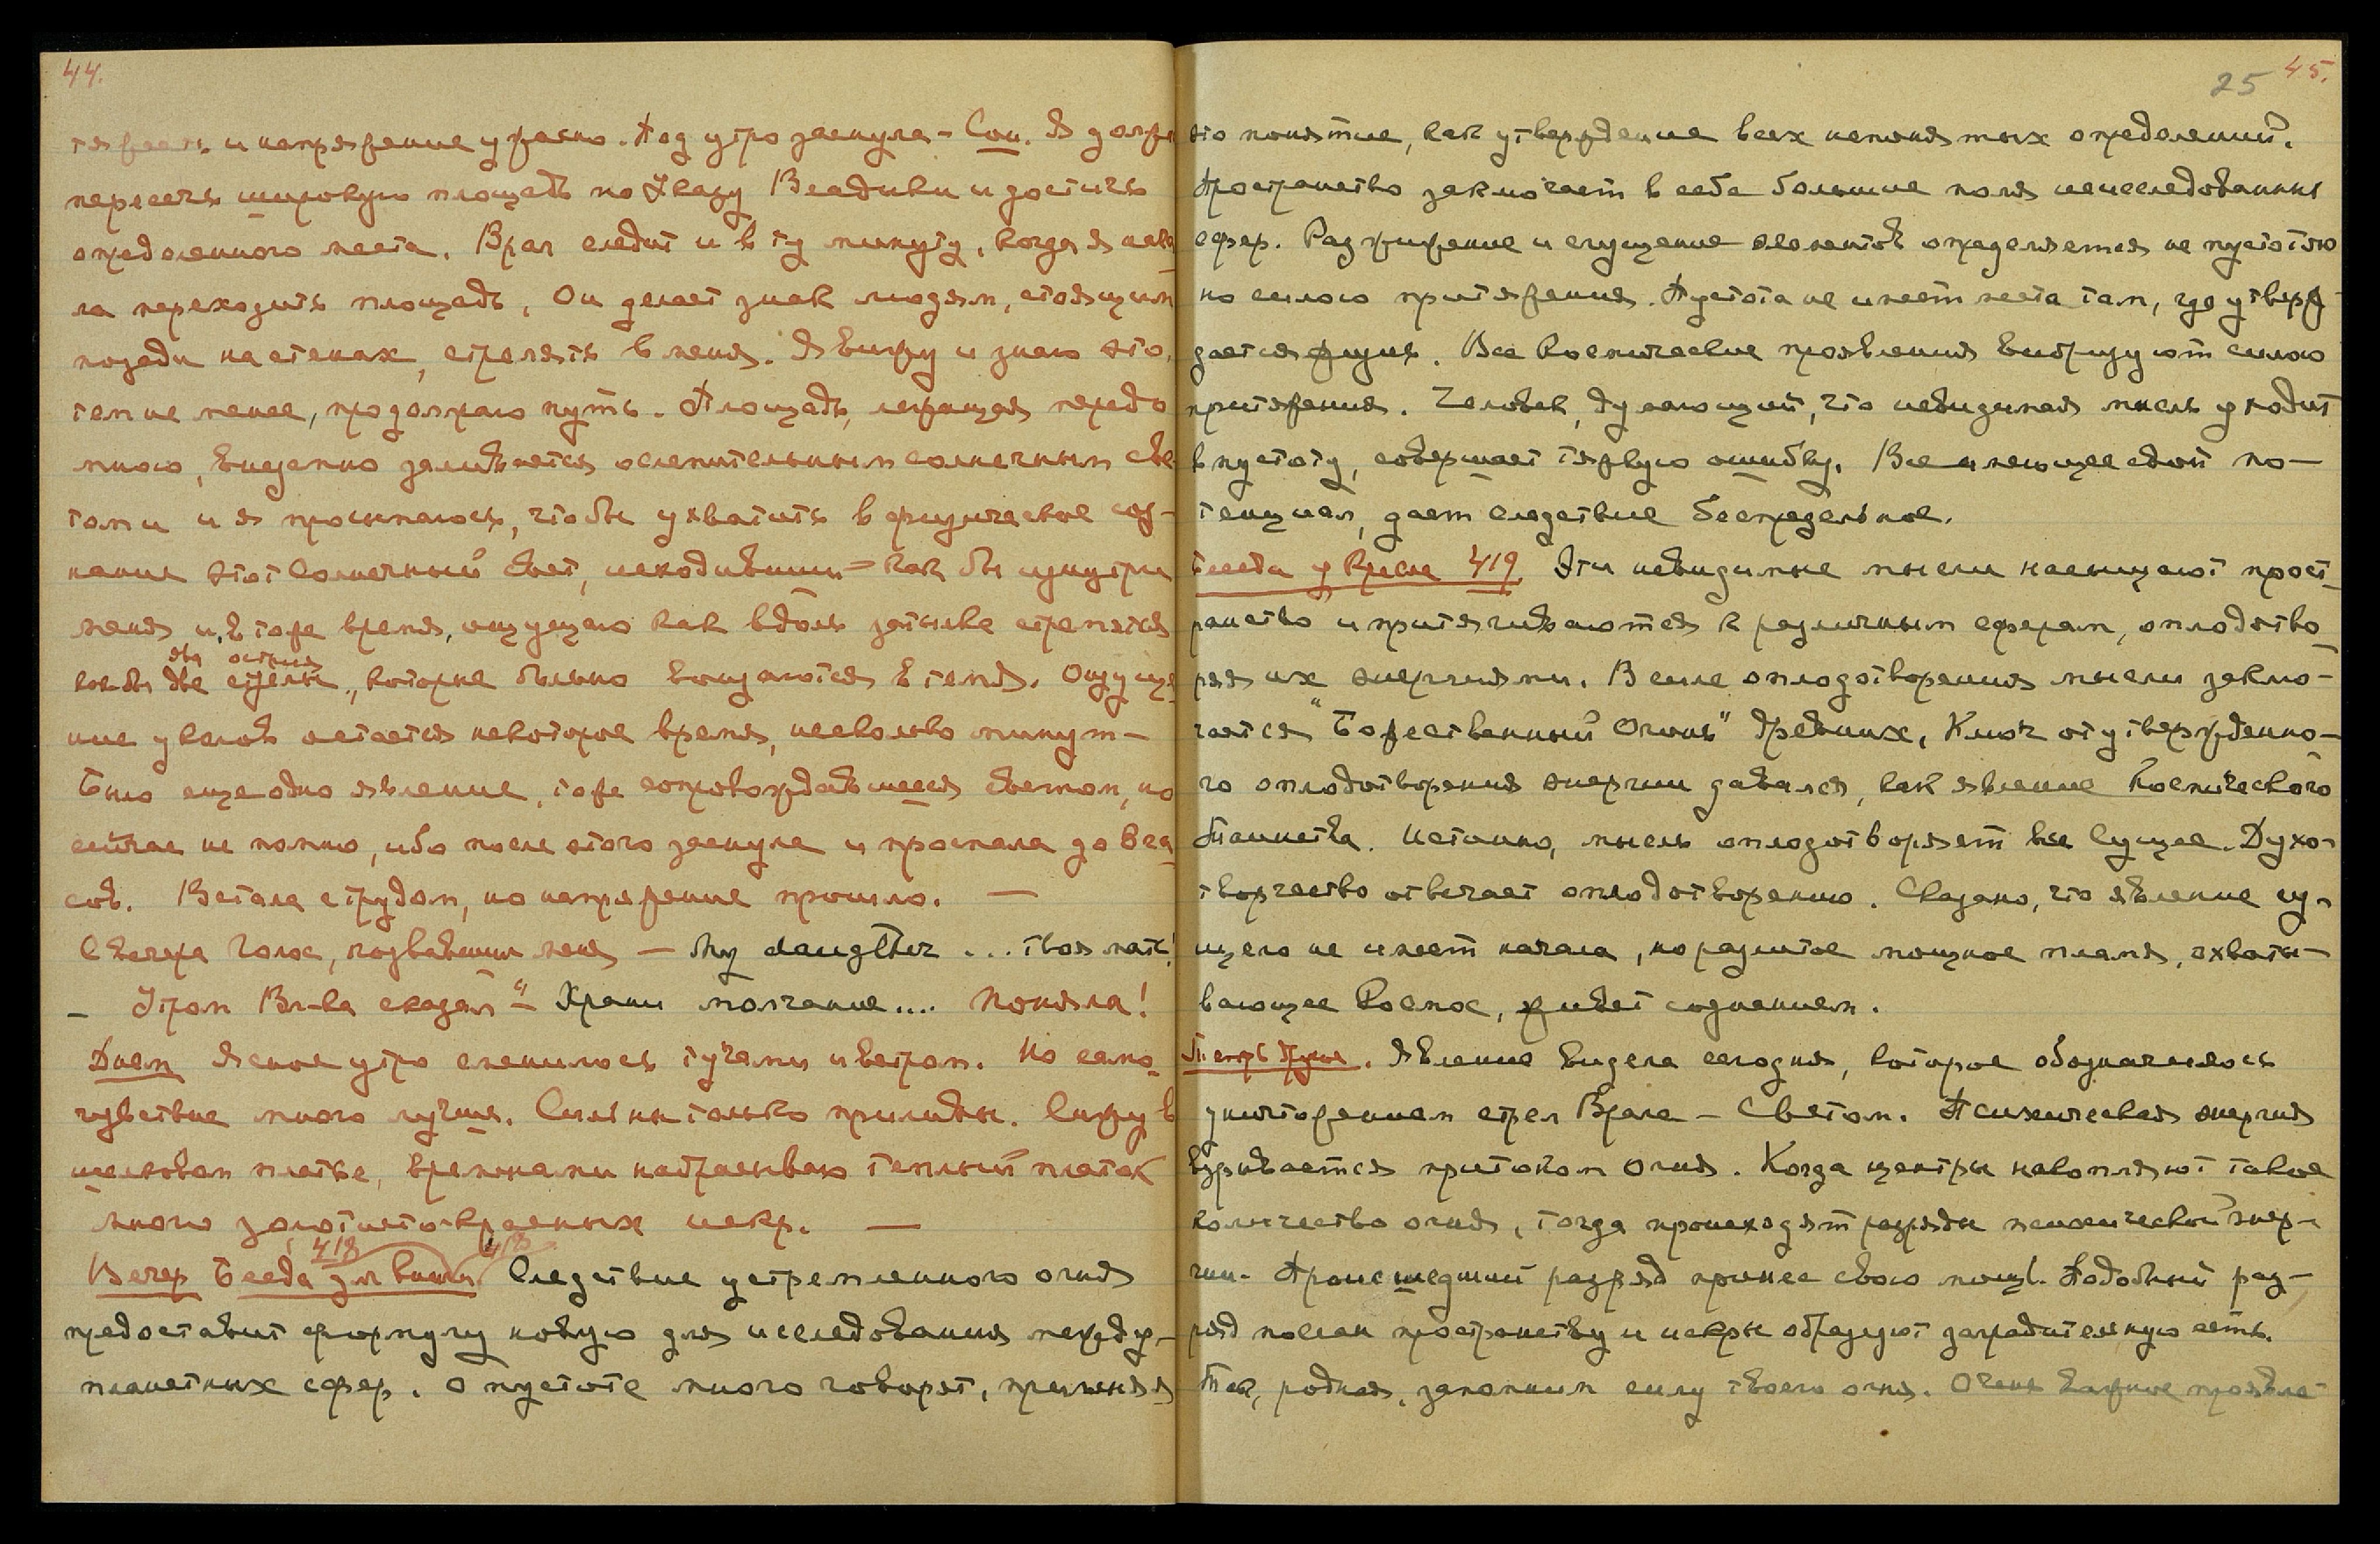 44.
тяжесть и напряжение ужасно. Под утро заснула – Сон. Я долж
пересечь широкую площадь по Указу Владыки и достичь
определенного места. Враг следит и в ту минуту, когда я нача
ла переходить площадь, Он делает знак людям, стоящим
позади на стенах, стрелять в меня. Я вижу и знаю это,
тем не менее, продолжаю путь. Площадь, лежащая передо
мною, внезапно заливается ослепительным солнечным све
том и и я просыпаюсь, чтобы ухватить в физическое соз-
нание этот солнечный свет, исходивший как бы изнутри
меня и, в то же время, ощущаю как вдоль затылка стремятся
два острия
как бы две стрелы, которые больно вонзаются в темя. Ощуще
ние уколов остается некоторое время, несколько минут –
Было еще одно явление, тоже сопровождавшееся светом, но
сейчас не помню, ибо после этого заснула и проспала до 8 ча
сов. Встала с трудом, но напряжение прошло. —
С вечера Голос, позвавший меня – My daughter ... твоя мать!
– Утром Вл-ка сказал "– Храни молчание.... Поняла!
Днем Ясное утро сменилось тучами и ветром. Но само
чувствие много лучше. Сильны только приливы. Сижу в
шелковом платье, временами набрасываю теплый платок
много золотисто-красных искр. —
418 418
Вечер Беседа для книги. Следствие устремленного огня
предоставит формулу новую для исследования между-
планетных сфер. О пустоте много говорят, применяя
25 45.
это понятие, как утверждение всех непонятых определений.
Пространство заключает в себе большие поля неисследованных
сфер. Разжижение и сгущение элементов определяется не пустотою
но силою притяжения. Пустота не имеет места там, где утверж
дается жизнь. Все Космические проявления вибрируют силою
притяжения. Человек, думающий, что невидимая мысль уходит
в пустоту, совершает тяжкую ошибку. Все имеющее свой по–
тенциал, дает следствие беспредельное.
Беседа у Кресла 419 Эти невидимые мысли насыщают прост
ранство и притягиваются к различным сферам, оплодотво
ряя их энергиями. В силе оплодотворения мысли заклю–
чается "Божественный Огонь" Древних. Ключ от утвержденно–
го оплодотворения энергии давался, как явление Космического
Таинства. Истинно, мысль оплодотворяет все Сущее. Духо-
творчество отвечает оплодотворению. Сказано, что явление су-
щего не имеет начала, но разлитое мощное пламя, охваты–
вающее Космос, живет сознанием.
Теперь другое. Явление видела сегодня, которое обозначилось
уничтожением стрел Врага – Светом. Психическая энергия
взрывается притоком Огня. Когда центры накопляют такое
количество огня, тогда происходят разряды психической энер-
гии. Происшедший разряд принес свою мощь. Подобный раз–
ряд послан пространству и искры образуют заградительную сеть.
Так, родная, запомним силу твоего огня. Очень важное проявле